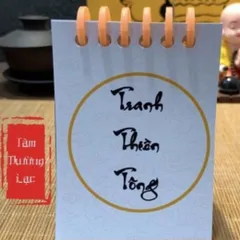 Tranh
Thiền
Tông
Tâm
Thường
Lạc